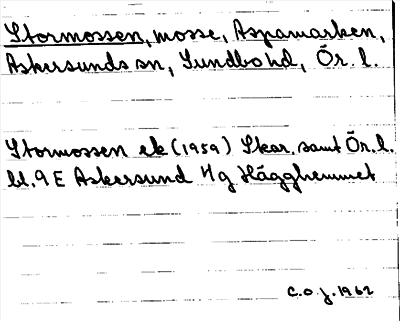 Stormossen, mosse, Aspamarken,
Askersunds sn, Sundbo hd, Ör. l.
Stormossen ek (1959) Skar. samt Ör. l.
bl. 9 E Askersund 4g Hägghemmet
C.O.J. 1962